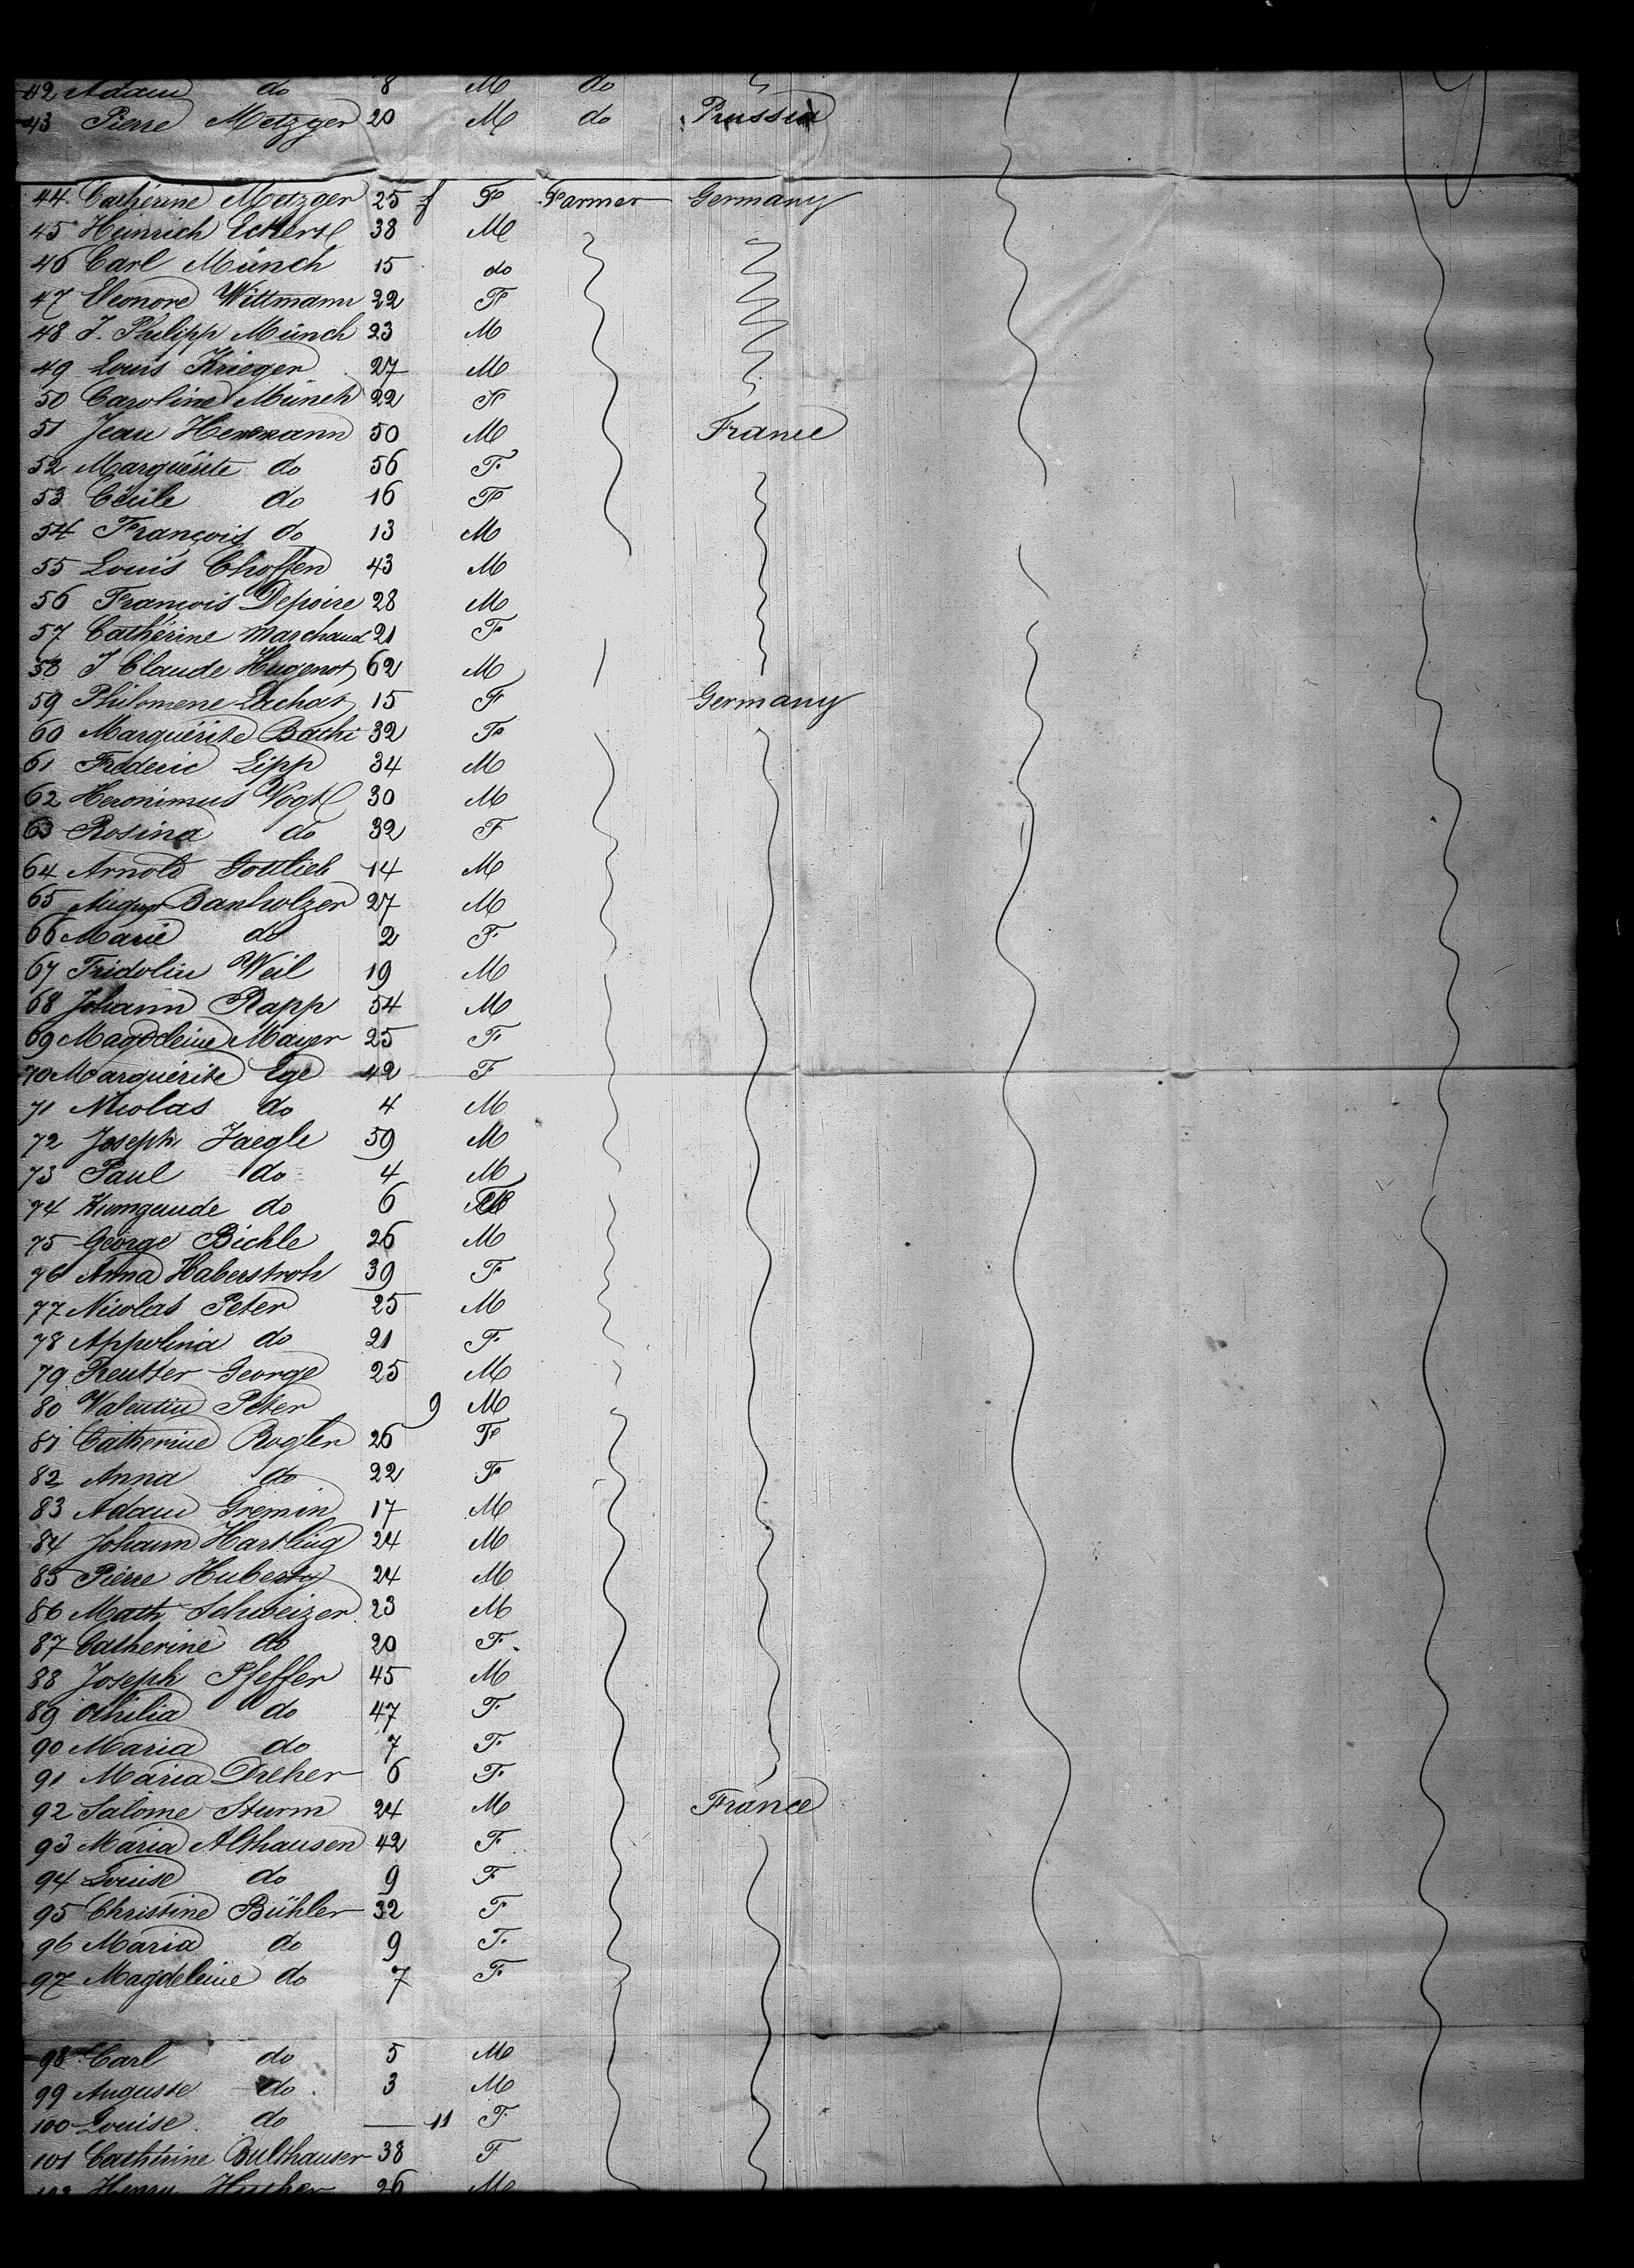 42 Adam do 8 M do
43 Pierre Metzger 20 M do Prussia
44 Cathérine Metzger 25 F Farmer Germany
45 Heinrich Eckert 38 M
46 Carl Münch 15 do
47 Eleonore Wittmann 22 F
48 J. Philipp Münch 23 M
49 Louis Krieger 27 M
50 Caroline Münch 22 F
51 Jean Hermann 50 M France
52 Marguérite do 56 F
53 Cécile do 16 F
54 François do 13 M
55 Louis Choffen 43 M
56 François Depoire 28 M
57 Cathérine Marchand 21 F
58 J Claude Hugenot 62 M
59 Philomene Lachat 15 F Germany
60 Marguérite Bathi 32 F
61 Frederic Lipp 34 M
62 Heronimus Vogt 30 M
63 Rosina do 32 F
64 Arnold Gottlieb 14 M
65 August Banholzer 27 M
66 Marie do 2 F
67 Fridolin Weil 19 M
68 Johann Rapp 54 M
69 Magdeleine Mayer 25 F
70 Marguérite Ege 42 F
71 Nicolas do 4 M
72 Joseph Jaegle 59 M
73 Paul do 4 M
74 do 6
75 George Bichle 26 M
76 Anna Haberstroh 39 F
77 Nicolas Peter 25 M
78 Appolina do 21 F
79 Reutter George 25 M
80 Valentin Peter 9 M
81 Catherine Rogler 26 F
82 Anna do 22 F
83 Adam Gremin 17 M
84 Johann Hartling 24 M
85 Pierre Huberty 24 M
86 Math Schweizer 23 M
87 Catherine do 20 F
88 Joseph Pfeffer 45 M
89 Othilia do 47 F
90 Maria do 7 F
91 Maria Dreher 6 F
92 Salome Sturm 24 M France
93 Maria Althausen 42 F
94 Louise do 9 F
95 Christine Bühler 32 F
96 Maria do 9 F
97 Magdeleine do 7 F
98 Carl do 5 M
99 Auguste do 3 M
100 Louise do 11 F
101 Cathérine Bulthauser 38 F
Henry 26 M